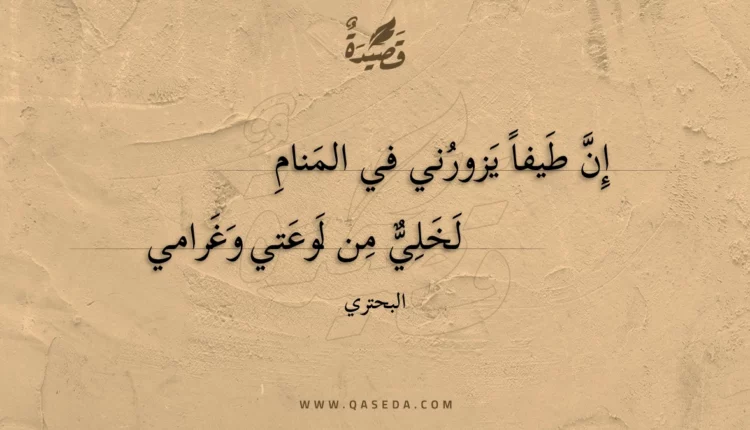 قَصِيْدَةٌ
إِنَّ طَيفاً يَزورُني في المَنامِ
لَخَلِيٌّ مِن لَوعَتي وَغَرامي
البحتري
WWW.QASEDA.COM